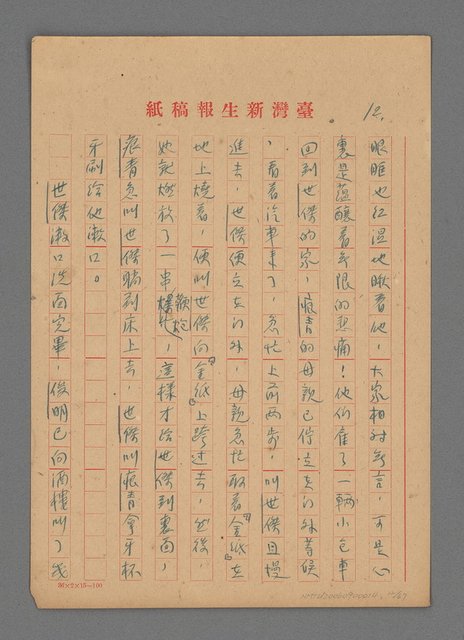 紙稿報生新灣臺
12.
眼眶也紅溫地瞅着他，大家相對無言，可是心
裏是蘊釀着無限的悲痛！他們雇了一輛小包車
回到世傑的家，痕青的母親已停立在门外等候
，看着汽車來了，急忙上前两步，叫世傑且慢
進去，世傑便立在门外，母親急忙取着「金紙」在
地上燒着，便叫世傑向「金紙」上跨过去，然後，
她就燃放了一串鞭炮，這樣才給世傑到裏面，
痕青急叫世傑躺到床上去，世傑叫痕青拿牙杯
牙刷給他漱口。
世傑漱口洗面完畢，俊明已向酒樓叫了
36×2×15—100